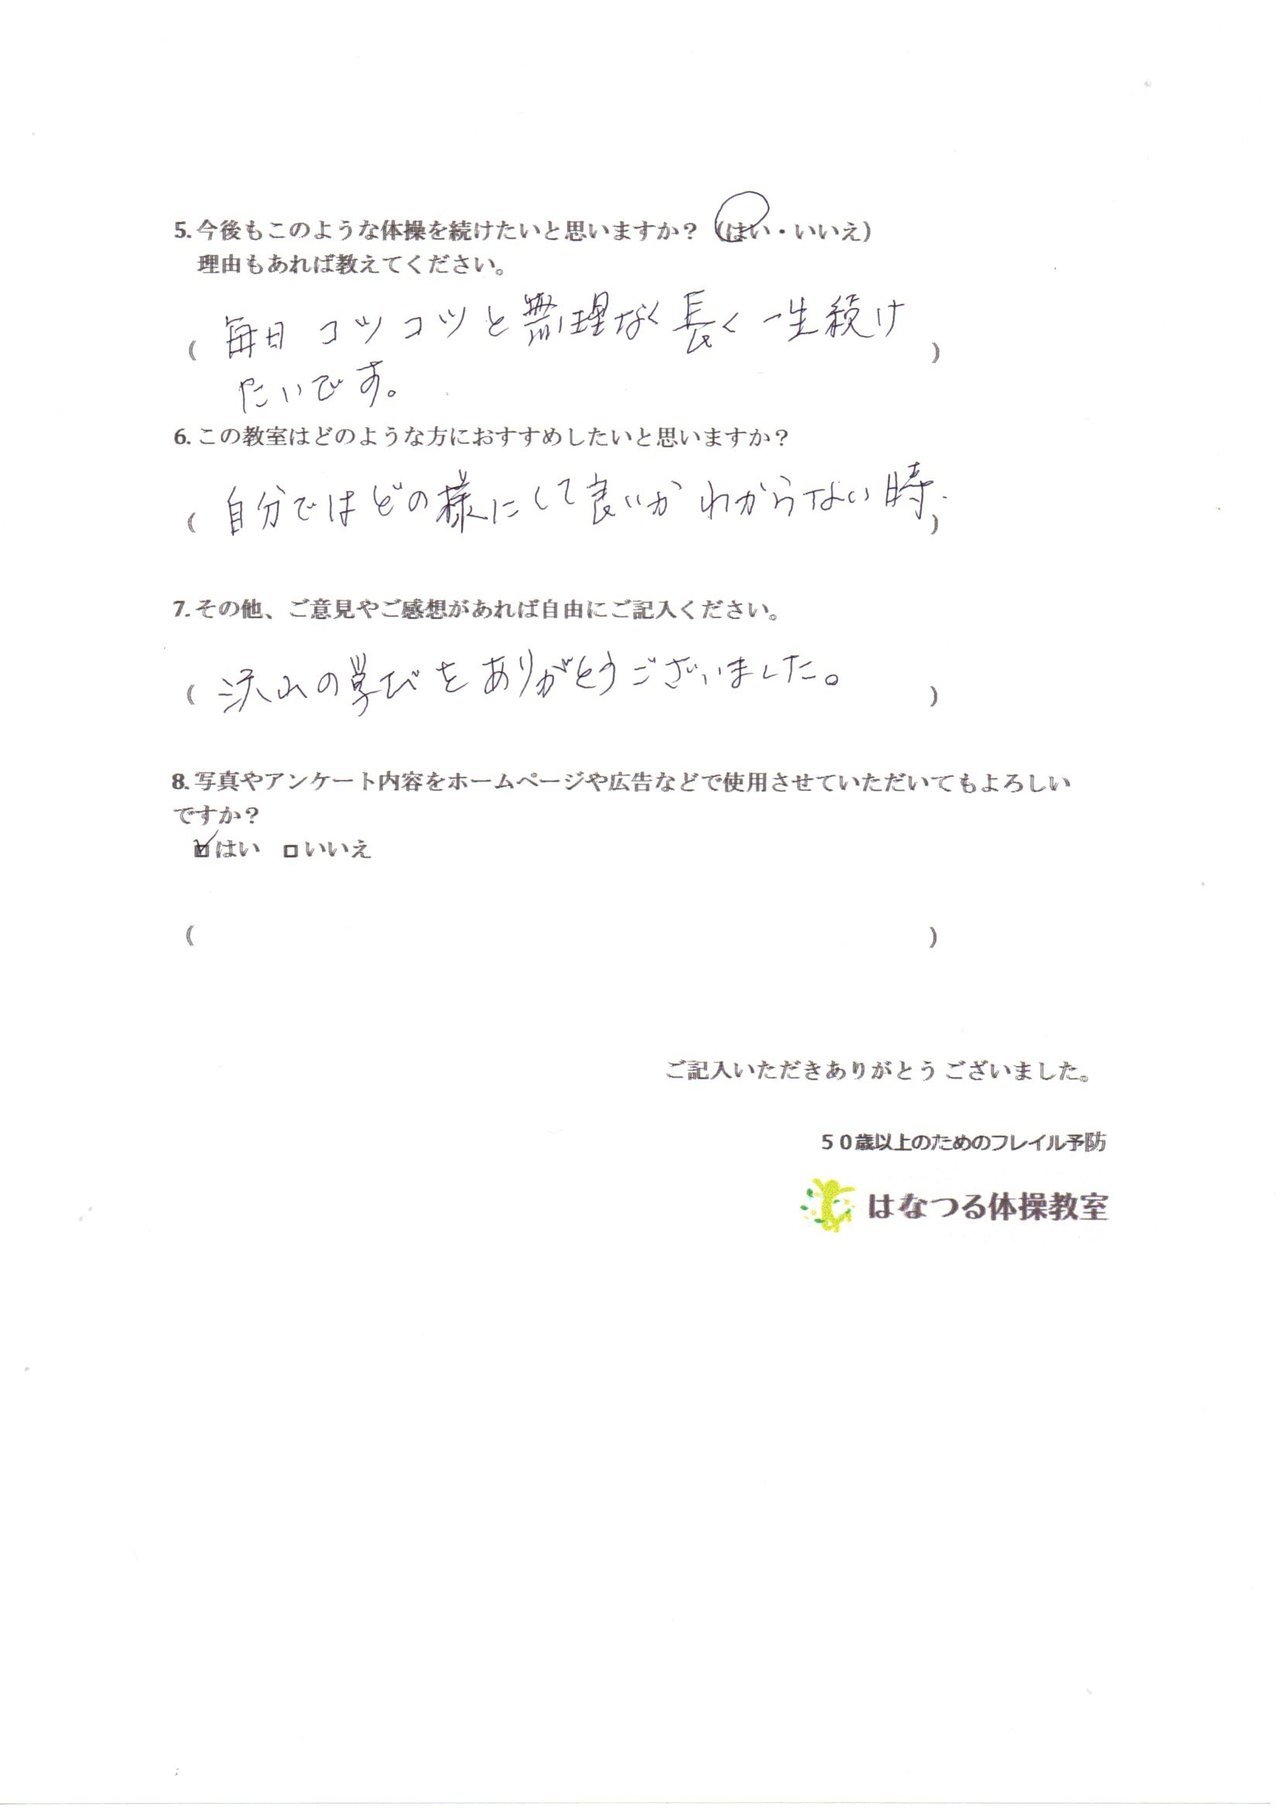 5.今後もこのような体操を続けたいと思いますか？（はい・いいえ）
理由もあれば教えてください。
（毎日コツコツと無理なく長く一生続け
たいです。）
6.この教室はどのような方におすすめしたいと思いますか？
（自分ではどの様にして良いかわからない時.）
7.その他、ご意見やご感想があれば自由にご記入ください。
（沢山の学びをありがとうございました。）
8.写真やアンケート内容をホームページや広告などで使用させていただいてもよろしい
ですか？
☑はい □いいえ
（ ）
ご記入いただきありがとうございました。
５０歳以上のためのフレイル予防
はなつる体操教室